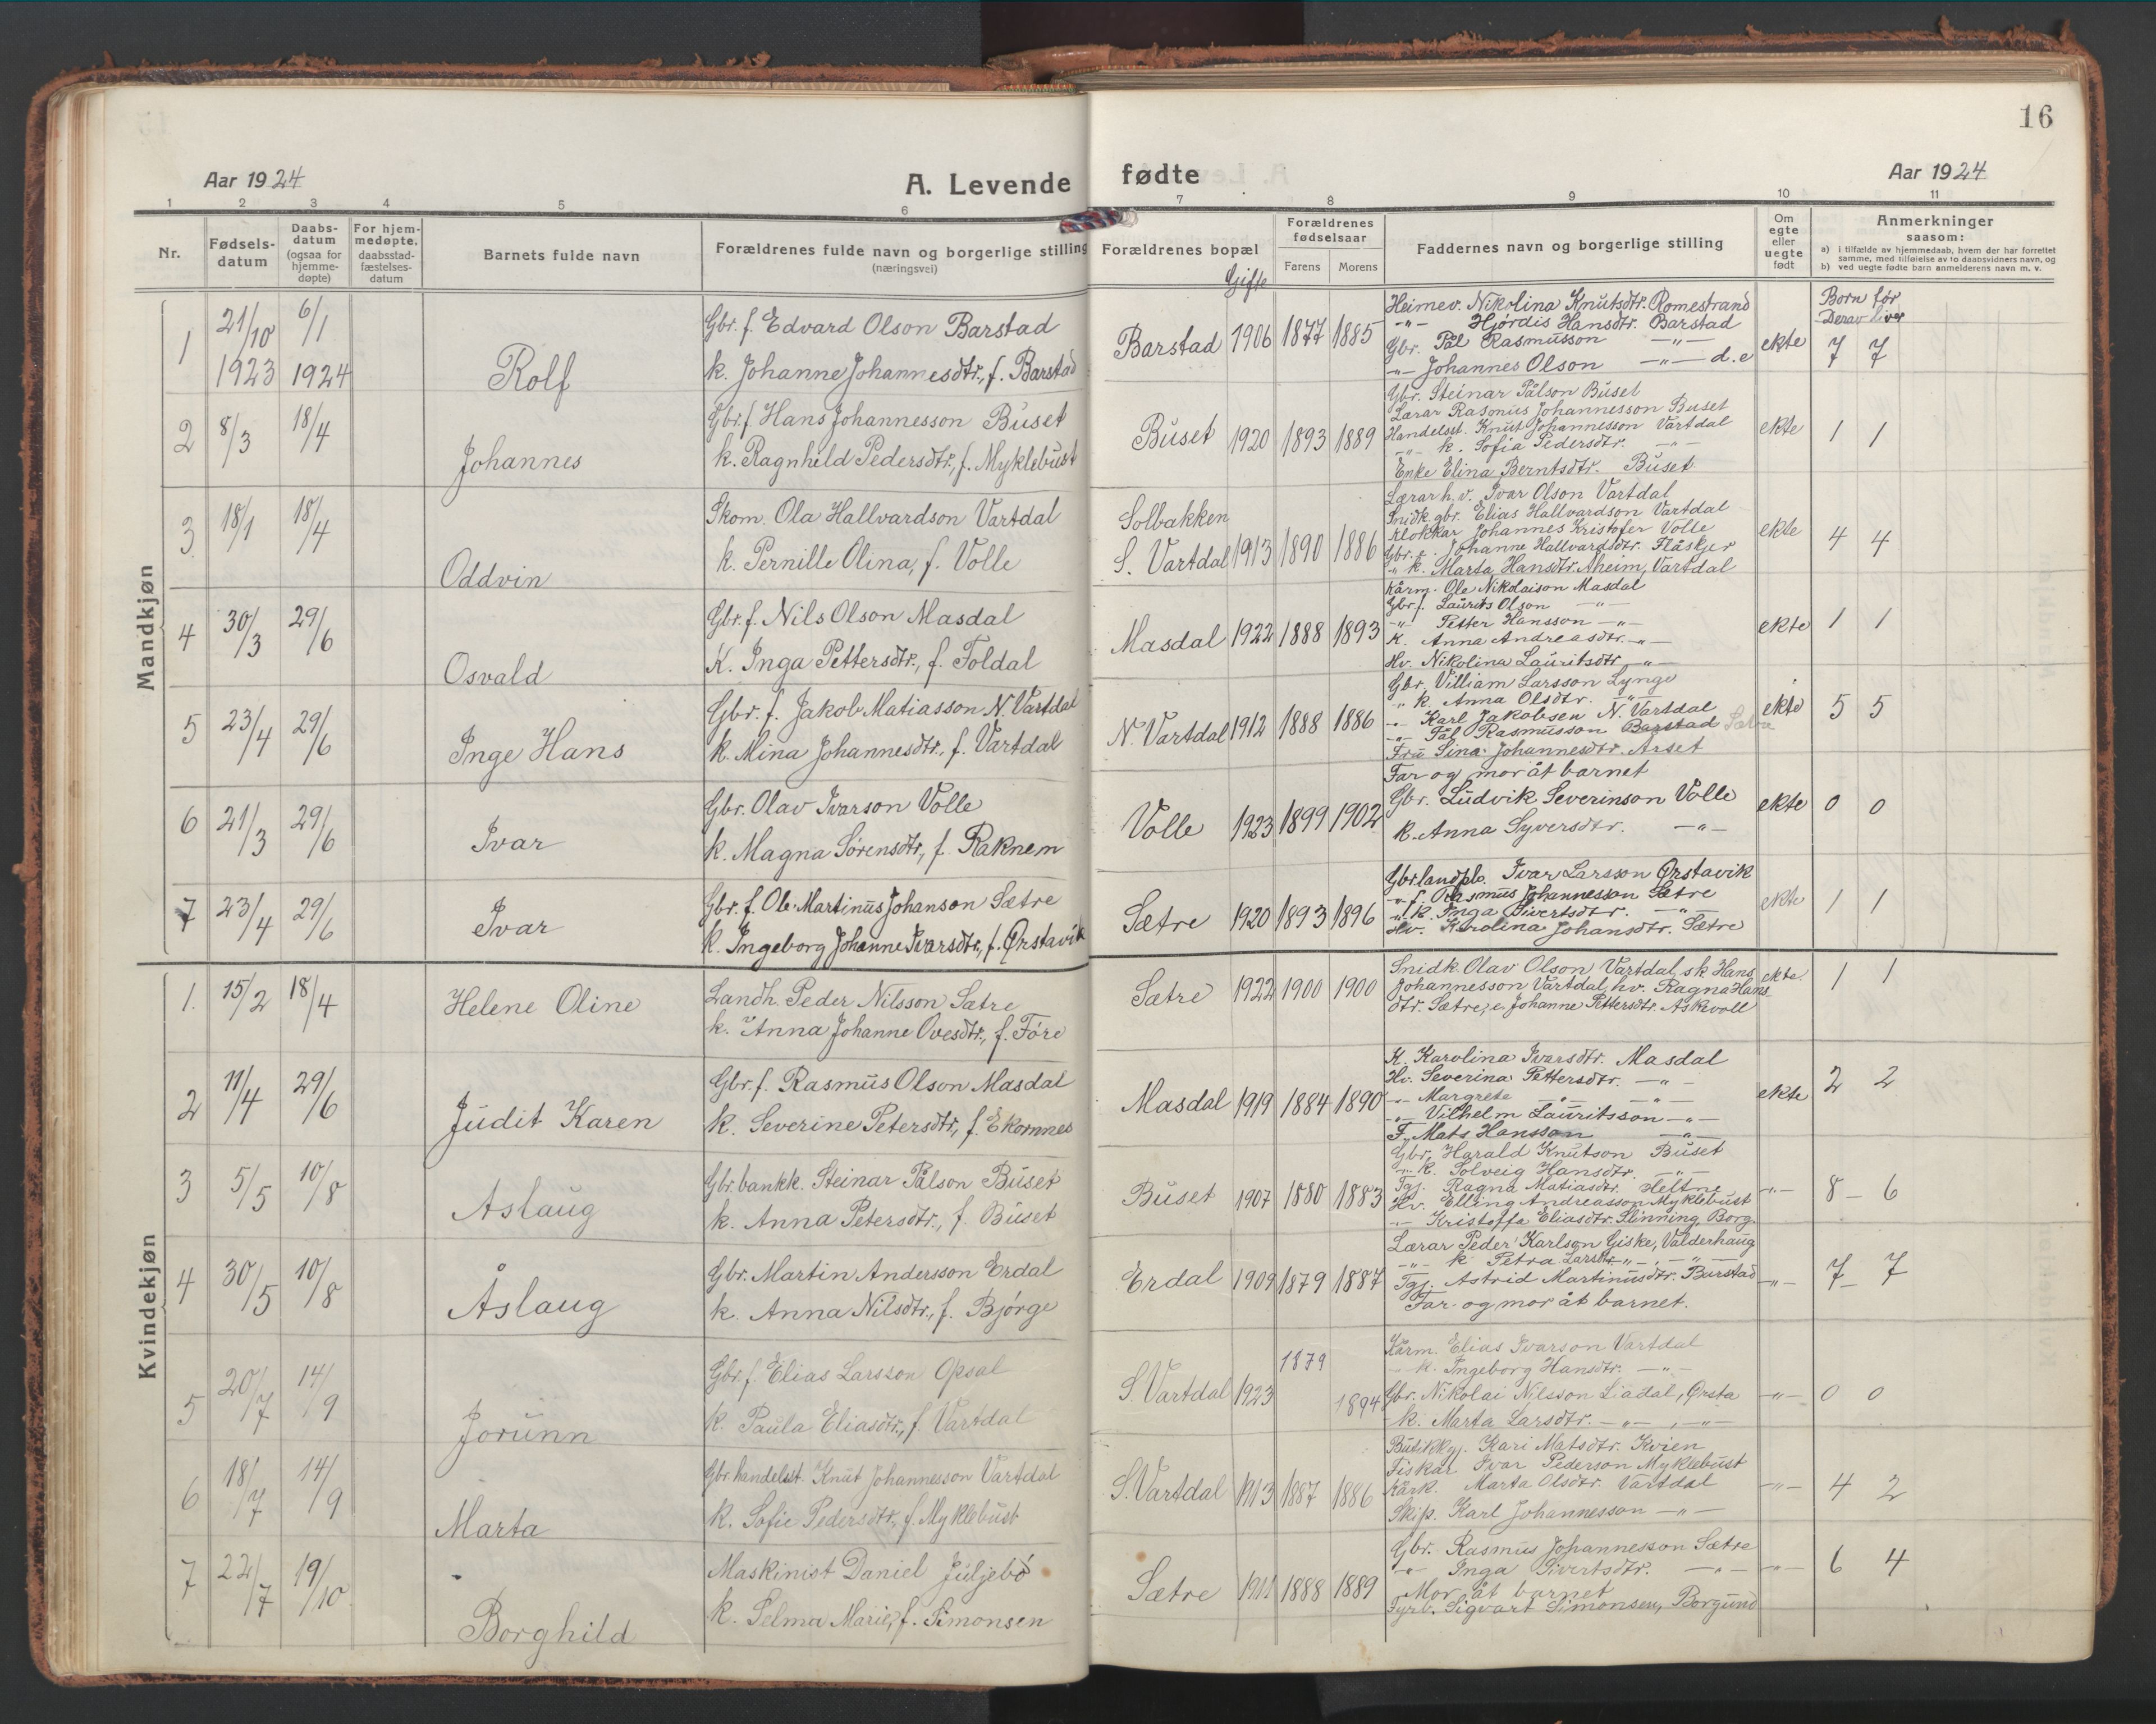 16
Aar 1924
A. Levende fødte
Aar 1924
1 2 3 4 5 6 7 8 9 10 11
Nr.
Fødsels-
datum
Daabs-
datum
(ogsaa for
hjemme-
døpte)
For hjem-
medøpte.
daabsstad-
fæstelses-
datum
Barnets fulde navn
Forældrenes fulde navn og borgerlige stilling
(næringsvei)
Forældrenes bopæl
Gifte
Forældrenes
fødselsaar
Farens Morens
Faddernes navn og borgerlige stilling
Om
egte
eller
uegte
født
Anmerkninger
saasom:
a) i tilfælde av hjemmedaab, hvem der har forrettet
samme, med tilføielse av to daabsvidners navn, og
b) ved uegte fødte barn anmelderens navn m. v.
Born før
Derav liver
Mandkjøn
1 21/10 1923 6/1 1924 Rolf
Gbr. f. Edvard Olson Barstad
k. Johanne Johannesdtr., f. Barstad
Barstad 1906 1877 1885
Heimev. Nikolina Knutsdtr. Romestrand
-"- Hjørdis Hansdtr. Barstad
Gbr. Pål Rasmusson -"-
-"- Johannes Olson -"- d.e
ekte 7 7
2 8/3 18/4 Johannes
Gbr. f. Hans Johannesson Buset
k. Ragnhild Pedersdtr., f. Myklebust
Buset 1920 1893 1889
Gbr. Steinar Pålson Buset
Lærar Rasmus Johannesson Buset
Handelsst. Knut Johannesson Vartdal
-"- k. Sofia Pedersdtr. -"-
Enke Elina Berntsdtr. Buset
ekte 1 1
3 18/1 18/4 Oddvin
Skom. Ola Hallvardson Vartdal
k. Pernille Olina, f. Volle
Solbakken
S. Vartdal 1913 1890 1886
Lærar h. v. Ivar Olson Vartdal
Snidk. gbr. Elias Hallvardson Vartdal
Klokkar Johannes Kristofer Volle
Gbr. e. Johanne Hallvardsdtr. Flåskjer
-"- k. Marta Hansdtr. Aheim, Vartdal
ekte 4 4
4 30/3 29/6 Osvald
Gbr. f. Nils Olson Masdal
K. Inga Pettersdtr., f. Foldal
Masdal 1922 1888 1893
Kårm. Ole Nikolaison Masdal
Gbr. f. Laurits Olson -"-
-"- Petter Hansson -"-
K. Anna Andreasdtr. -"-
Hv. Nikolina Lauritsdtr. -"-
ekte 1 1
5 23/4 29/6 Inge Hans
Gbr. f. Jakob Matiasson N. Vartdal
k. Mina Johannesdtr., f. Vartdal
N. Vartdal 1912 1888 1886
Gbr. Villiam Larsson Lynge
" k. Anna Olsdtr. -"-
-"- Karl Jakobsen N. Vartdal
-"- Pål Rasmusson Barstad
Fru Sina Johannesdtr. Arset
Far og mor åt barnet
ekte 5 5
6 21/3 29/6 Ivar
Gbr. Olav Ivarson Volle
k. Magna Sørensdtr., f. Raknem
Volle 1923 1899 1902
Gbr. Ludvik Severinson Volle
k. Anna Syversdtr. -"-
ekte 0 0
7 23/4 29/6 Ivar
Gbr. f. Ole Martinus Johanson Sætre
k. Ingeborg Johanne Ivarsdtr., f. Ørstavik
Sætre 1920 1893 1896
Gbr. landpb. Ivar Larsson Ørstavik
-"- f. Rasmus Johannesson Sætre
-"- k. Inga Sivertsdtr. -"-
Hv. Karolina Johansdtr. Sætre
ekte 1 1
Kvindekjøn
1. 15/2 18/4 Helene Oline
Landh. Peder Nilsson Sætre
k. Anna Johanne Ovesdtr., f. Føre
Sætre 1922 1900 1900
Snidk Olav Olson Vartdal, sk Hans
Johannesson Vartdal, hv. Ragna Hans
dtr. Sætre, e. Johanne Pettersdtr. Askvoll
ekte. 1 1
2 11/4 29/6 Judit Karen
Gbr. f. Rasmus Olson Masdal
k. Severine Petersdtr., f. Ekornnes
Masdal 1919 1884 1890
K. Karolina Ivarsdtr. Masdal
Hv. Severina Pettersdtr. -"-
-"- Margrete -"- -"-
-"- Vilhelm Lauritsson -"-
F. Mats Hansson -"-
ekte 2 2
3 5/5 10/8 Aslaug
Gbr. bankk. Steinar Pålson Buset
k. Anna Petersdtr., f. Buset
Buset 1907 1880 1883
Gbr. Harald Knutson Buset
-"- k. Solveig Hansdtr. -"-
Tgj. Ragna Matiasdtr. Heltne
Hv. Elling Andreasson Myklebust
-"- Kristoffa Eliasdtr. Slinning, Borg.
-"- 8 - 6
4 30/5 10/8 Åslaug
Gbr. Martin Andersson Erdal
k. Anna Nilsdtr., f. Bjørge
Erdal 1909 1879 1887
Lærar Peder Karlson Giske, Valderhaug
-"- k Petra Larsdtr. -"- , -"-
Tgj. Astrid Martinusdtr. Barstad
Far og mor åt barnet.
-"- 7 - 7
5 20/7 14/9 Jorunn
Gbr. f. Elias Larsson Opsal
k. Paula Eliasdtr., f. Vartdal
S. Vartdal 1923 1879 1894
Kårm. Elias Ivarson Vartdal
k. Ingeborg Hansdtr. -"-
Gbr. Nikolai Nilsson Liadal, Ørsta
- k. Marta Larsdtr. -"- , -"-
-"- 0 0
6 18/7 14/9 Marta
Gbr. handelsst. Knut Johannesson Vartdal
k. Sofie Pedersdtr., f. Myklebust
S. Vartdal 1913 1887 1886
Butikkgj. Kari Matsdtr. Kvien
Fiskar Ivar Pederson Myklebust
Kårk. Marta Olsdtr. Vartdal
Skip. Karl Johannesson -"-
-"- 4 2
7 22/7 19/10 Borghild
Maskinist Daniel Juljebø
k. Selma Marie, f. Simonsen
Sætre 1911 1888 1889
Gbr. Rasmus Johannesson Sætre
-"- Inga Sivertsdtr. -"-
Mor åt barnet
Fyrb. Sigvart Simonsen, Borgund
-"- 6 4